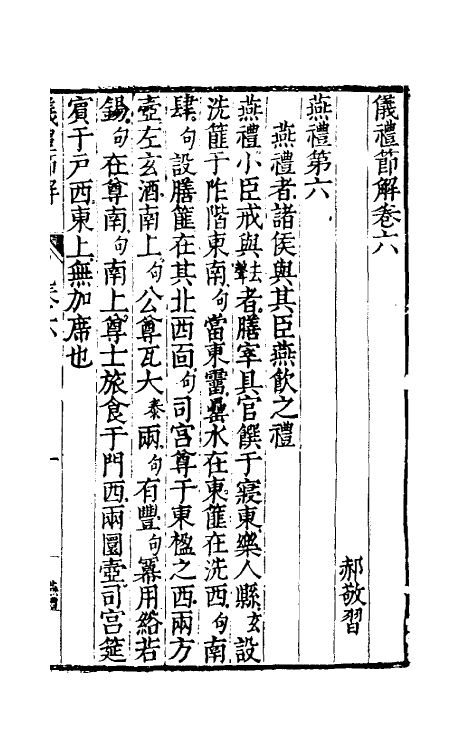 儀禮節解卷六
郝敬習
燕禮第六
燕禮者諸侯與其臣燕飲之禮
燕禮小臣戒與去聲者膳宰具官饌于寢東樂人縣玄設
洗篚于阼階東南句當東霤罍水在東篚在洗西句南
肆句設膳篚在其北西面句司宫尊于東楹之西兩方
壺左玄酒南上句公尊瓦大泰兩句有豐句冪用綌若
錫句在尊南句南上尊士旅食于門西兩圜壺司宫筵
賓于戶西東上無加席也
儀禮節解
卷六
一
燕禮